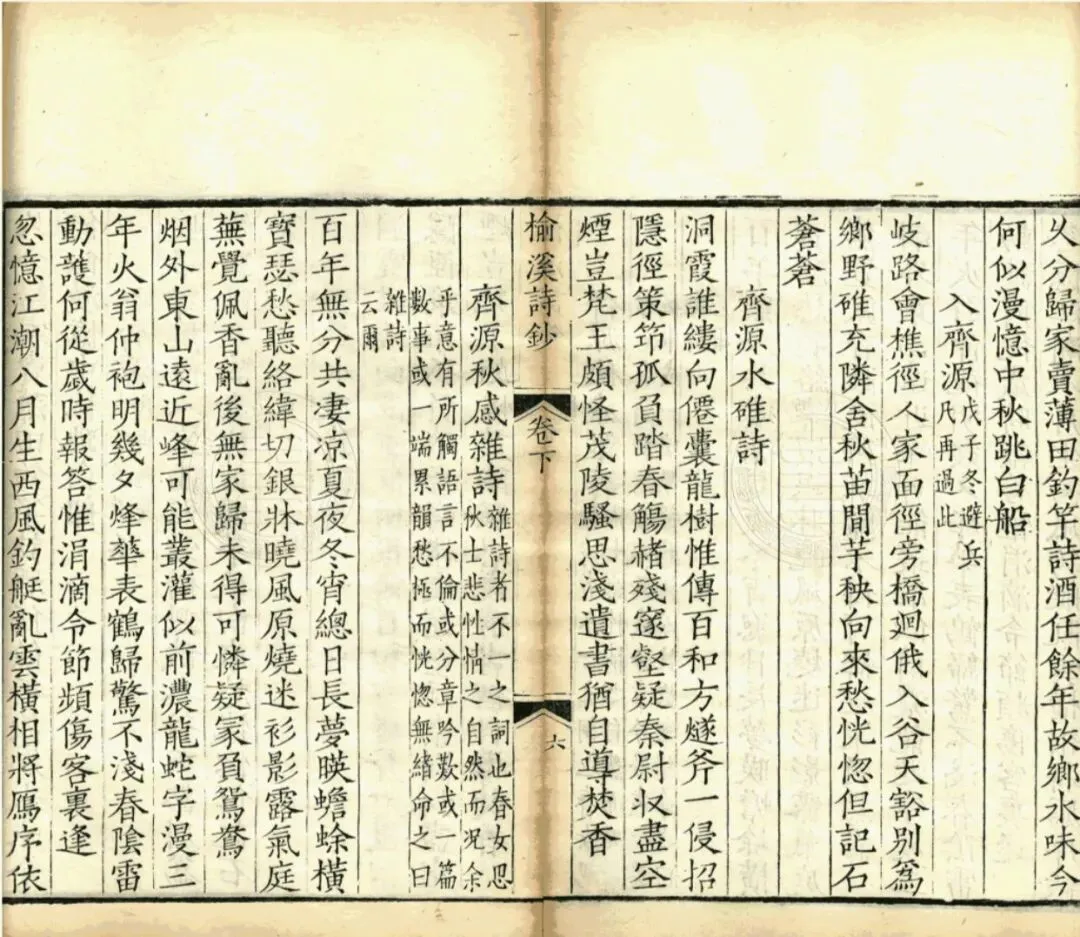 乆分歸家賣薄田釣竿詩酒任餘年故鄉水味今
何似漫憶中秋跳白船
入齊源戊子冬避兵
凡再過此
岐路會樵徑人家面徑旁橋廻俄入谷天豁別爲
鄉野碓充隣舍秋苗間芋秧向來愁恍惚但記石
蒼蒼
齊源水碓詩
洞霞誰縷向僊囊龍樹惟傳百和方燧斧一侵招
隱徑策笻孤負踏春觴赭殘窽壑疑秦尉收盡空
煙豈梵王頗怪茂陵騷思淺遺書猶自導焚香
榆溪詩鈔
卷下
六
齊源秋感雜詩雜詩者不一之詞也春女思
秋士悲性情之自然而况余
乎意有所觸語言不倫或分章吟歎或一篇
數事或一端累韻愁極而恍惚無緒命之曰
雜詩
云爾
百年無分共凄凉夏夜冬宵總日長夢暎蟾蜍橫
寶瑟愁聽絡緯切銀牀曉風原燒迷衫影露氣庭
蕪覺佩香亂後無家歸未得可憐疑冢負鴛鴦
烟外東山遠近峰可能叢灌似前濃龍蛇字漫三
年火翁仲袍明幾夕烽華表鶴歸驚不淺春陰雷
動護何從歲時報答惟涓滴令節頻傷客裏逢
忽憶江潮八月生西風釣艇亂雲橫相將鴈序依